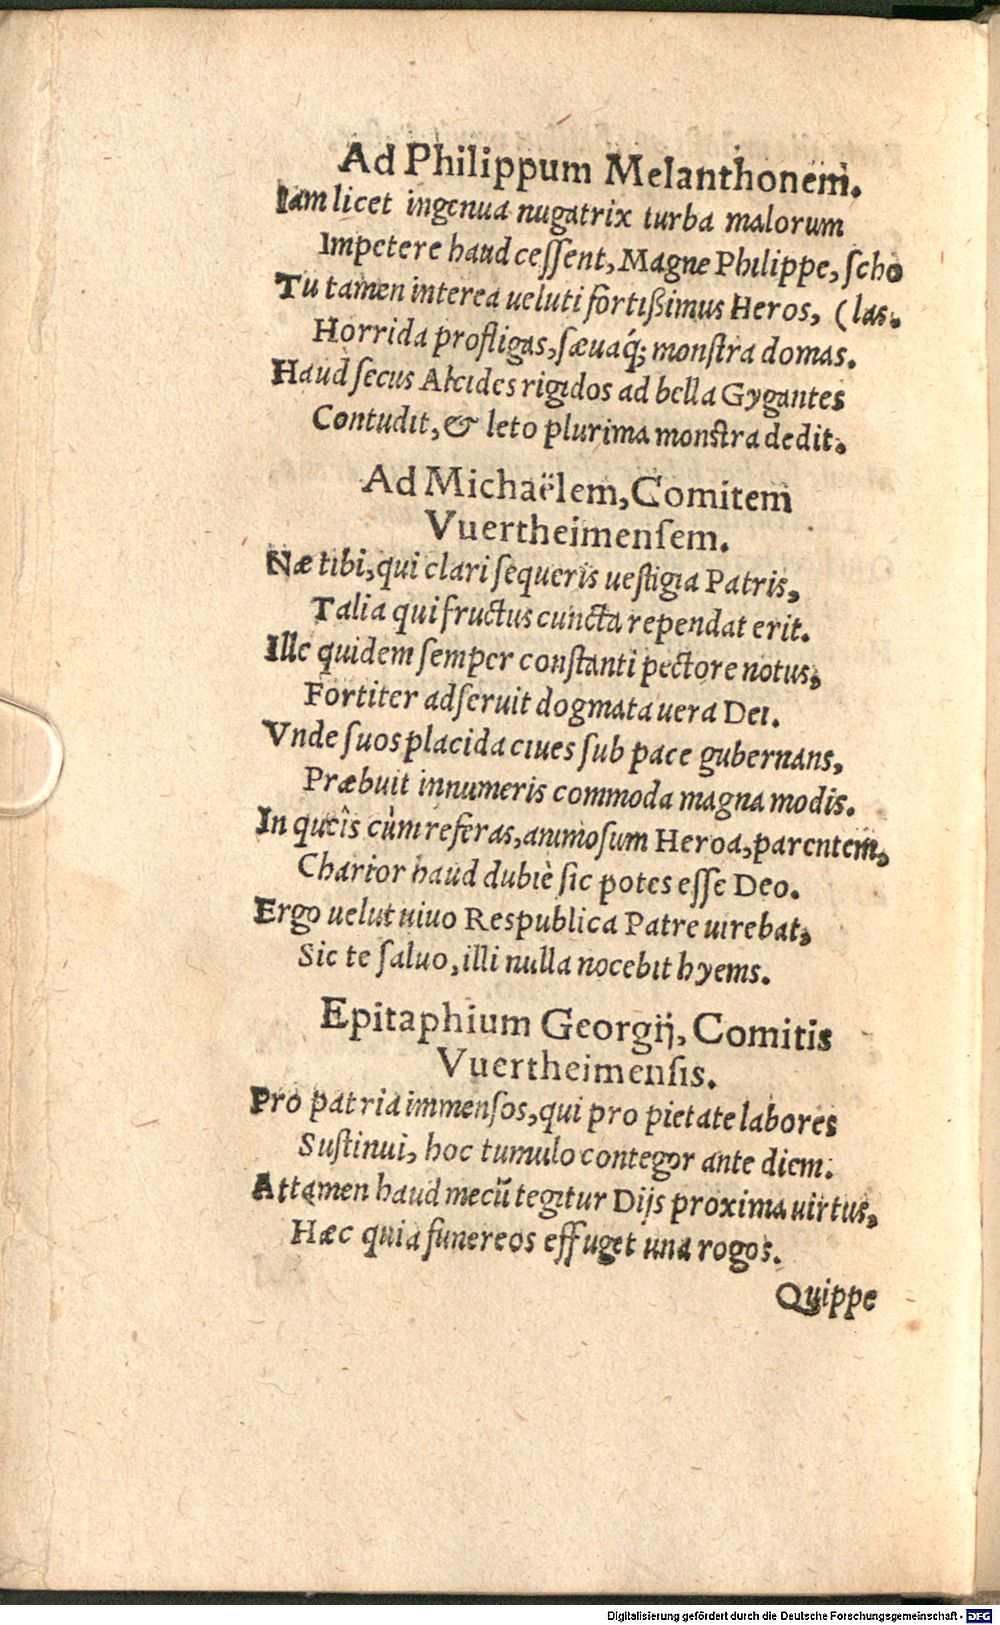 Ad Philippum Melanthonem.
Iam licet ingenua nugatrix turba malorum
Impetere haud cessent, Magne Philippe, scho
Tu tamen interea ueluti fortißimus Heros, (las.
Horrida profligas, sæuaq́; monstra domas.
Haud secus Alcides rigidos ad bella Gygantes
Contudit, & leto plurima monstra dedit.
Ad Michaëlem, Comitem
Vuertheimensem.
Næ tibi, qui clari sequeris uestigia Patris,
Talia qui fructus cuncta rependat erit.
Ille quidem semper constanti pectore notus,
Fortiter adseruit dogmata uera Dei.
Vnde suos placida ciues sub pace gubernans,
Præbuit innumeris commoda magna modis.
In queîs cùm referas, animosum Heroa, parentem,
Charior haud dubiè sic potes esse Deo.
Ergo uelut uiuo Respublica Patre uirebat,
Sic te saluo, illi nulla nocebit hyems.
Epitaphium Georgij, Comitis
Vuertheimensis.
Pro patria immensos, qui pro pietate labores
Sustinui, hoc tumulo contegor ante diem.
Attamen haud mecũ tegitur Dijs proxima uirtus,
Hæc quia funereos effuget una rogos.
Quippe
Digitalisierung gefördert durch die Deutsche Forschungsgemeinschaft - DFG